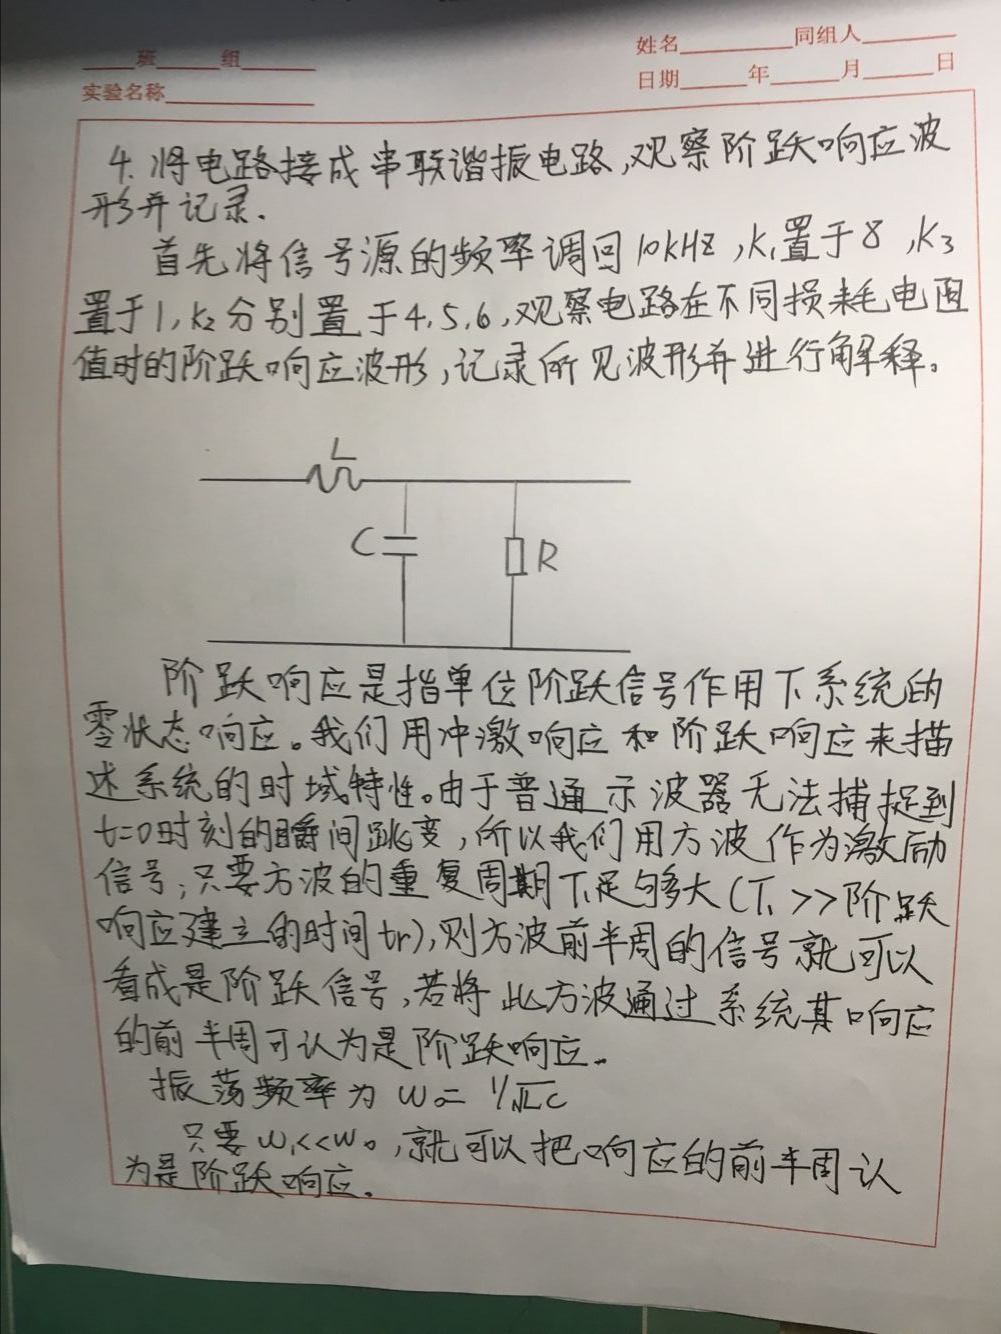 班 组
姓名 同组人
实验名称
日期 年 月 日
4. 将电路接成串联谐振电路,观察阶跃响应波
形并记录.
首先将信号源的频率调回10kHZ,K₁置于8,K₃
置于1,K₂分别置于4,5,6,观察电路在不同损耗电阻
值时的阶跃响应波形,记录所见波形并进行解释。
L
C
R
阶跃响应是指单位阶跃信号作用下系统的
零状态响应。我们用冲激响应和阶跃响应来描
述系统的时域特性。由于普通示波器无法捕捉到
t=0时刻的瞬间跳变,所以我们用方波作为激励
信号;只要方波的重复周期T₁足够大(T₁>>阶跃
响应建立的时间tr),则方波前半周的信号就可以
看成是阶跃信号,若将此方波通过系统其响应
的前半周可认为是阶跃响应。
振荡频率为 W₀= 1/√LC
只要W₁<<W₀,就可以把响应的前半周认
为是阶跃响应.